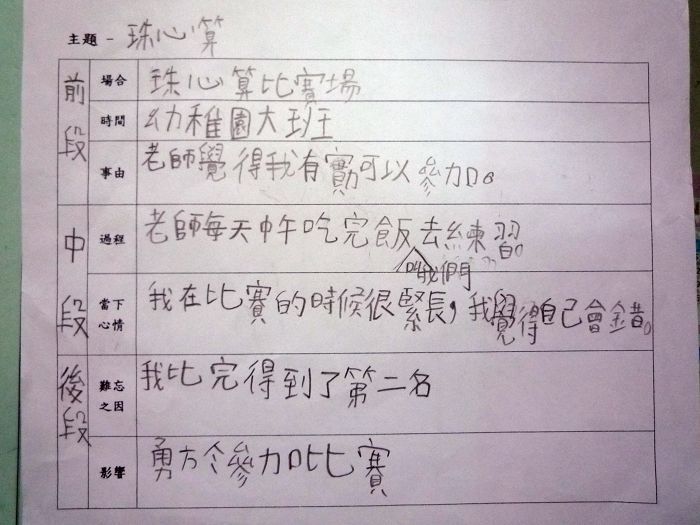 主題 - 珠心算
前段
場合 珠心算比賽場
時間 幼稚園大班王
事由 老師覺得我有實可以參加。
中段
過程 老師每天中午吃完飯去練習。
叫我們
當下心情 我在比賽的時候很緊張，我覺得自己會錯。
後段
難忘之因 我比完得到了第二名
影響 勇方令參加比賽